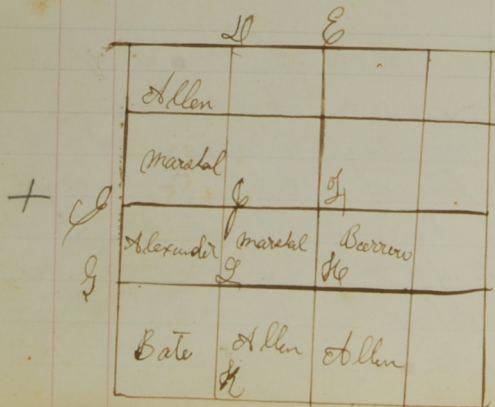 D E
Allen
Marshal
Alexander Marshal Burrow
G
Bate Allen Allen
K